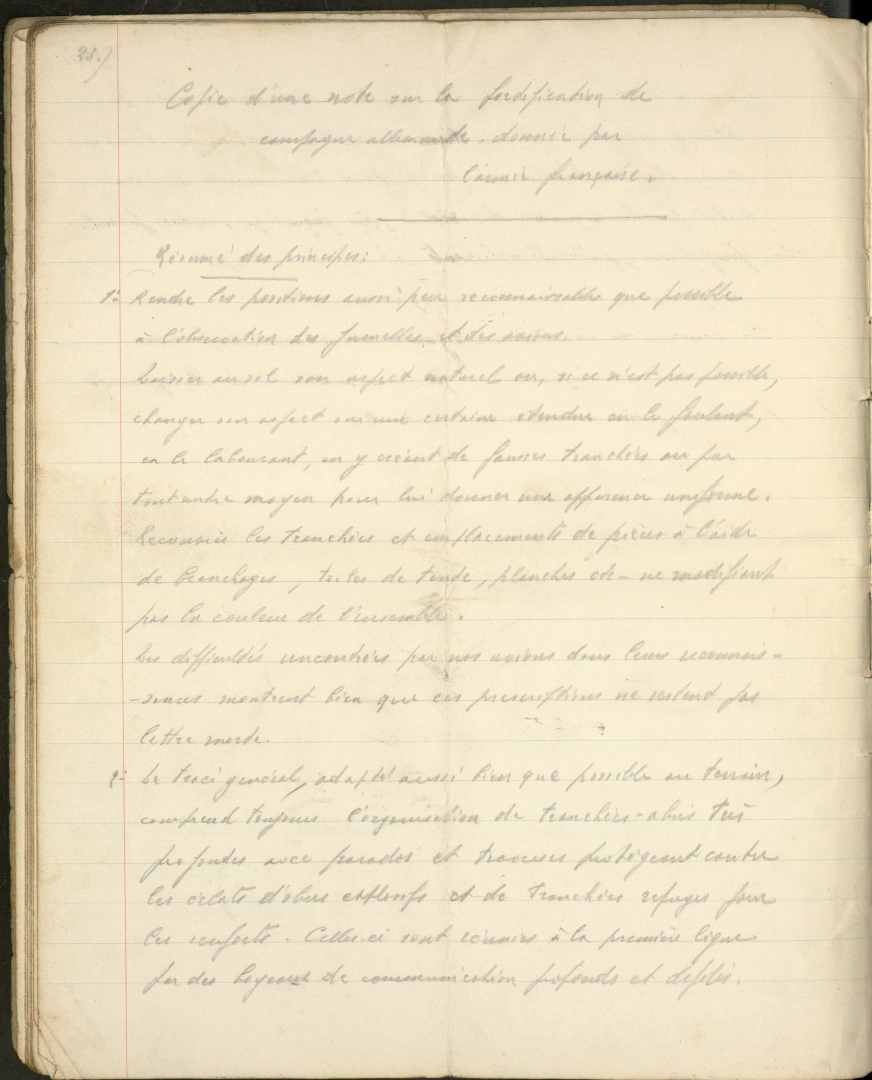 25.)
Copie d'une note sur la fortification de
campagne allemande, donnée par
l'armée française.
Résumé des principes:
1º Rendre les positions aussi peu reconnaissables que possible
à l'observation des jumelles et des avions.
Laisser au sol son aspect naturel ou, si ce n'est pas possible,
changer son aspect sur une certaine étendue en le foulant,
en le labourant, en y créant de fausses tranchées ou par
tout autre moyen pour lui donner une apparence uniforme.
Recouvrir les tranchées et emplacements de pièces à l'aide
de branchages, toiles de tente, planches etc– ne modifiant
pas la couleur de l'ensemble.
Les difficultés rencontrées par nos avions dans leurs reconnais-
-sances montrent bien que ces prescriptions ne restent pas
lettre morte.
2º Le tracé général, adapté aussi bien que possible au terrain,
comprend toujours l'organisation de tranchées-abris très
profondes avec parados et traverses protégeant contre
les éclats d'obus explosifs et de tranchées refuges pour
les renforts. Celles-ci sont réunies à la première ligne
par des boyaux de communication profonds et défilés.